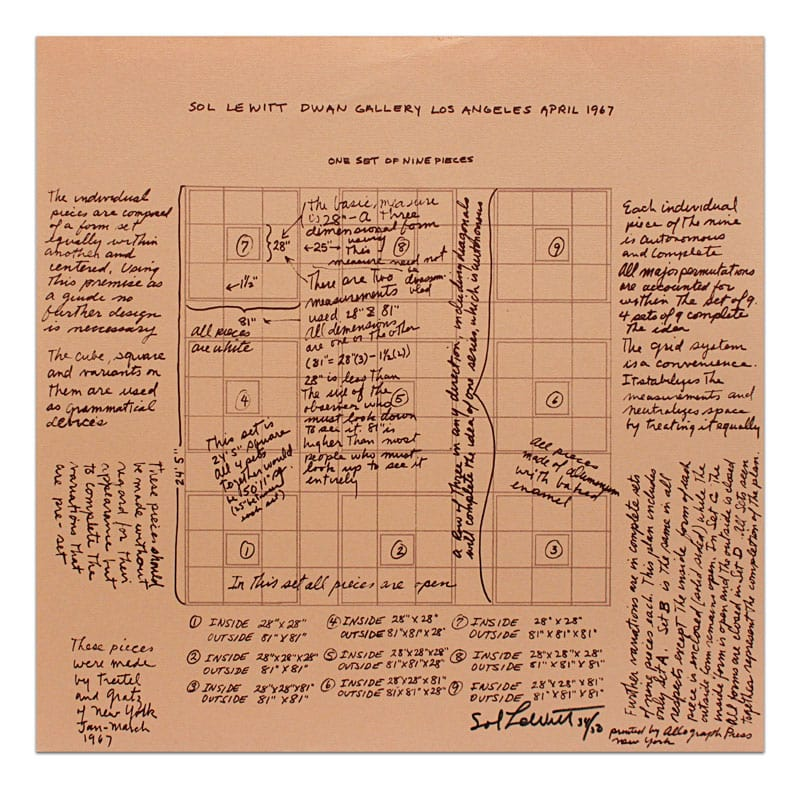 SOL LEWITT DWAN GALLERY LOS ANGELES APRIL 1967
ONE SET OF NINE PIECES
The individual
pieces are composed
of a form set
equally within
another and
centered. Using
this premise as
a guide no
further design
is necessary
The cube, square
and variants on
them are used
as grammatical
devices
These pieces should
be made without
regard for their
appearance but
to complete the
variations that
are pre-set
These pieces
were made
by Treitel
and Gratz
of New York
Jan-March
1967
7
28"
1½"
81"
all pieces
are white
24'5"
the basic measure
is 28" - A three
dimensional form
using
25"
8
This
measure need not
be
There are two
measurements
used 28" & 81"
All dimensions
are one or the other
(81" = 28"(3) - 1½(2))
28" is less than
the size of the
observer who
must look down
to see it. 81" is
higher than most
people who must
look up to see it
entirely
a row of three in any direction, including diagonals
will complete the idea of one series, which is autonomous
9
4
5
6
This set is
24'5" square
All 4 sets
together would
be 50'11" sq.
(25" between
each set)
all pieces
made of aluminum
with baked
enamel
1
2
3
In this set all pieces are open
Each individual
piece of the nine
is autonomous
and complete
All major permutations
are accounted for
within the set of 9.
4 sets of 9 complete
the idea
The grid system
is a convenience.
It stabilizes the
measurements and
neutralizes space
by treating it equally
Further variations are in complete sets
of nine pieces each. This plan includes
only set A. Set B is the same in all
respects except the inside form of each
piece is enclosed (solid sided) while the
outside form remains open. In Set C the
inside form is open and the outside is closed
All forms are closed in Set D. All Sets seen
together represent the completion of the plan.
1 INSIDE 28"X28"
OUTSIDE 81"X81"
2 INSIDE 28"X28"X28"
OUTSIDE 81"X81"
3 INSIDE 28"X28"X81"
OUTSIDE 81"X81"
4 INSIDE 28"X28"
OUTSIDE 81"X81"X28"
5 INSIDE 28"X28"X28"
OUTSIDE 81"X81"X28"
6 INSIDE 28"X28"X81
OUTSIDE 81"X81"X28"
7 INSIDE 28"X28"
OUTSIDE 81"X81"X81"
8 INSIDE 28"X28"X28
OUTSIDE 81"X81"X81"
9 INSIDE 28"X28"X81"
OUTSIDE 81"X81"X81"
Sol LeWitt 34/50
printed by Allograph Press
New York